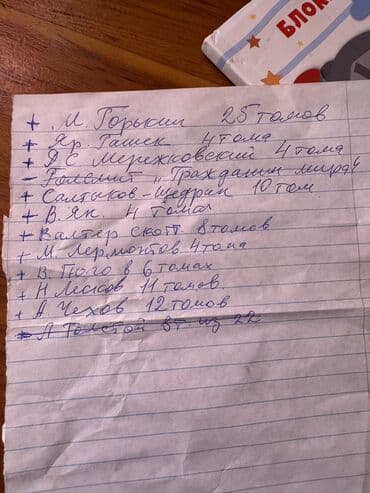 БЛОК
+ М. Горький 25 томов
+ Яр. Гашек 4 тома
+ Д.С. Мережковский 4 тома
- Голсмит „Гражданин мира"
+ Салтыков-Щедрин 10 том
+ В. Ян. 4 тома
+ Валтер Скотт. 8 томов
+ М. Лермонтов 4 тома
+ В. Гюго в 6 томах
+ Н Лесков 11 томов.
+ А Чехов 12 томов
- Л Толстой 8т из 22